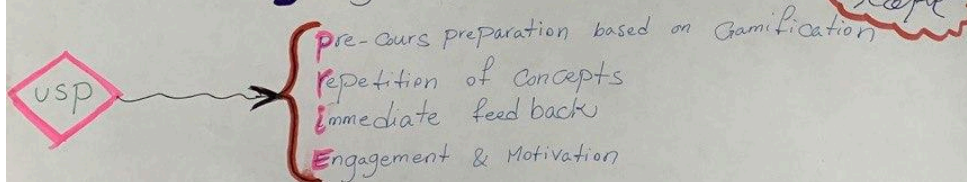 USP
Pre-Cours preparation based on Gamification
repetition of Concepts
immediate feedback
Engagement & Motivation